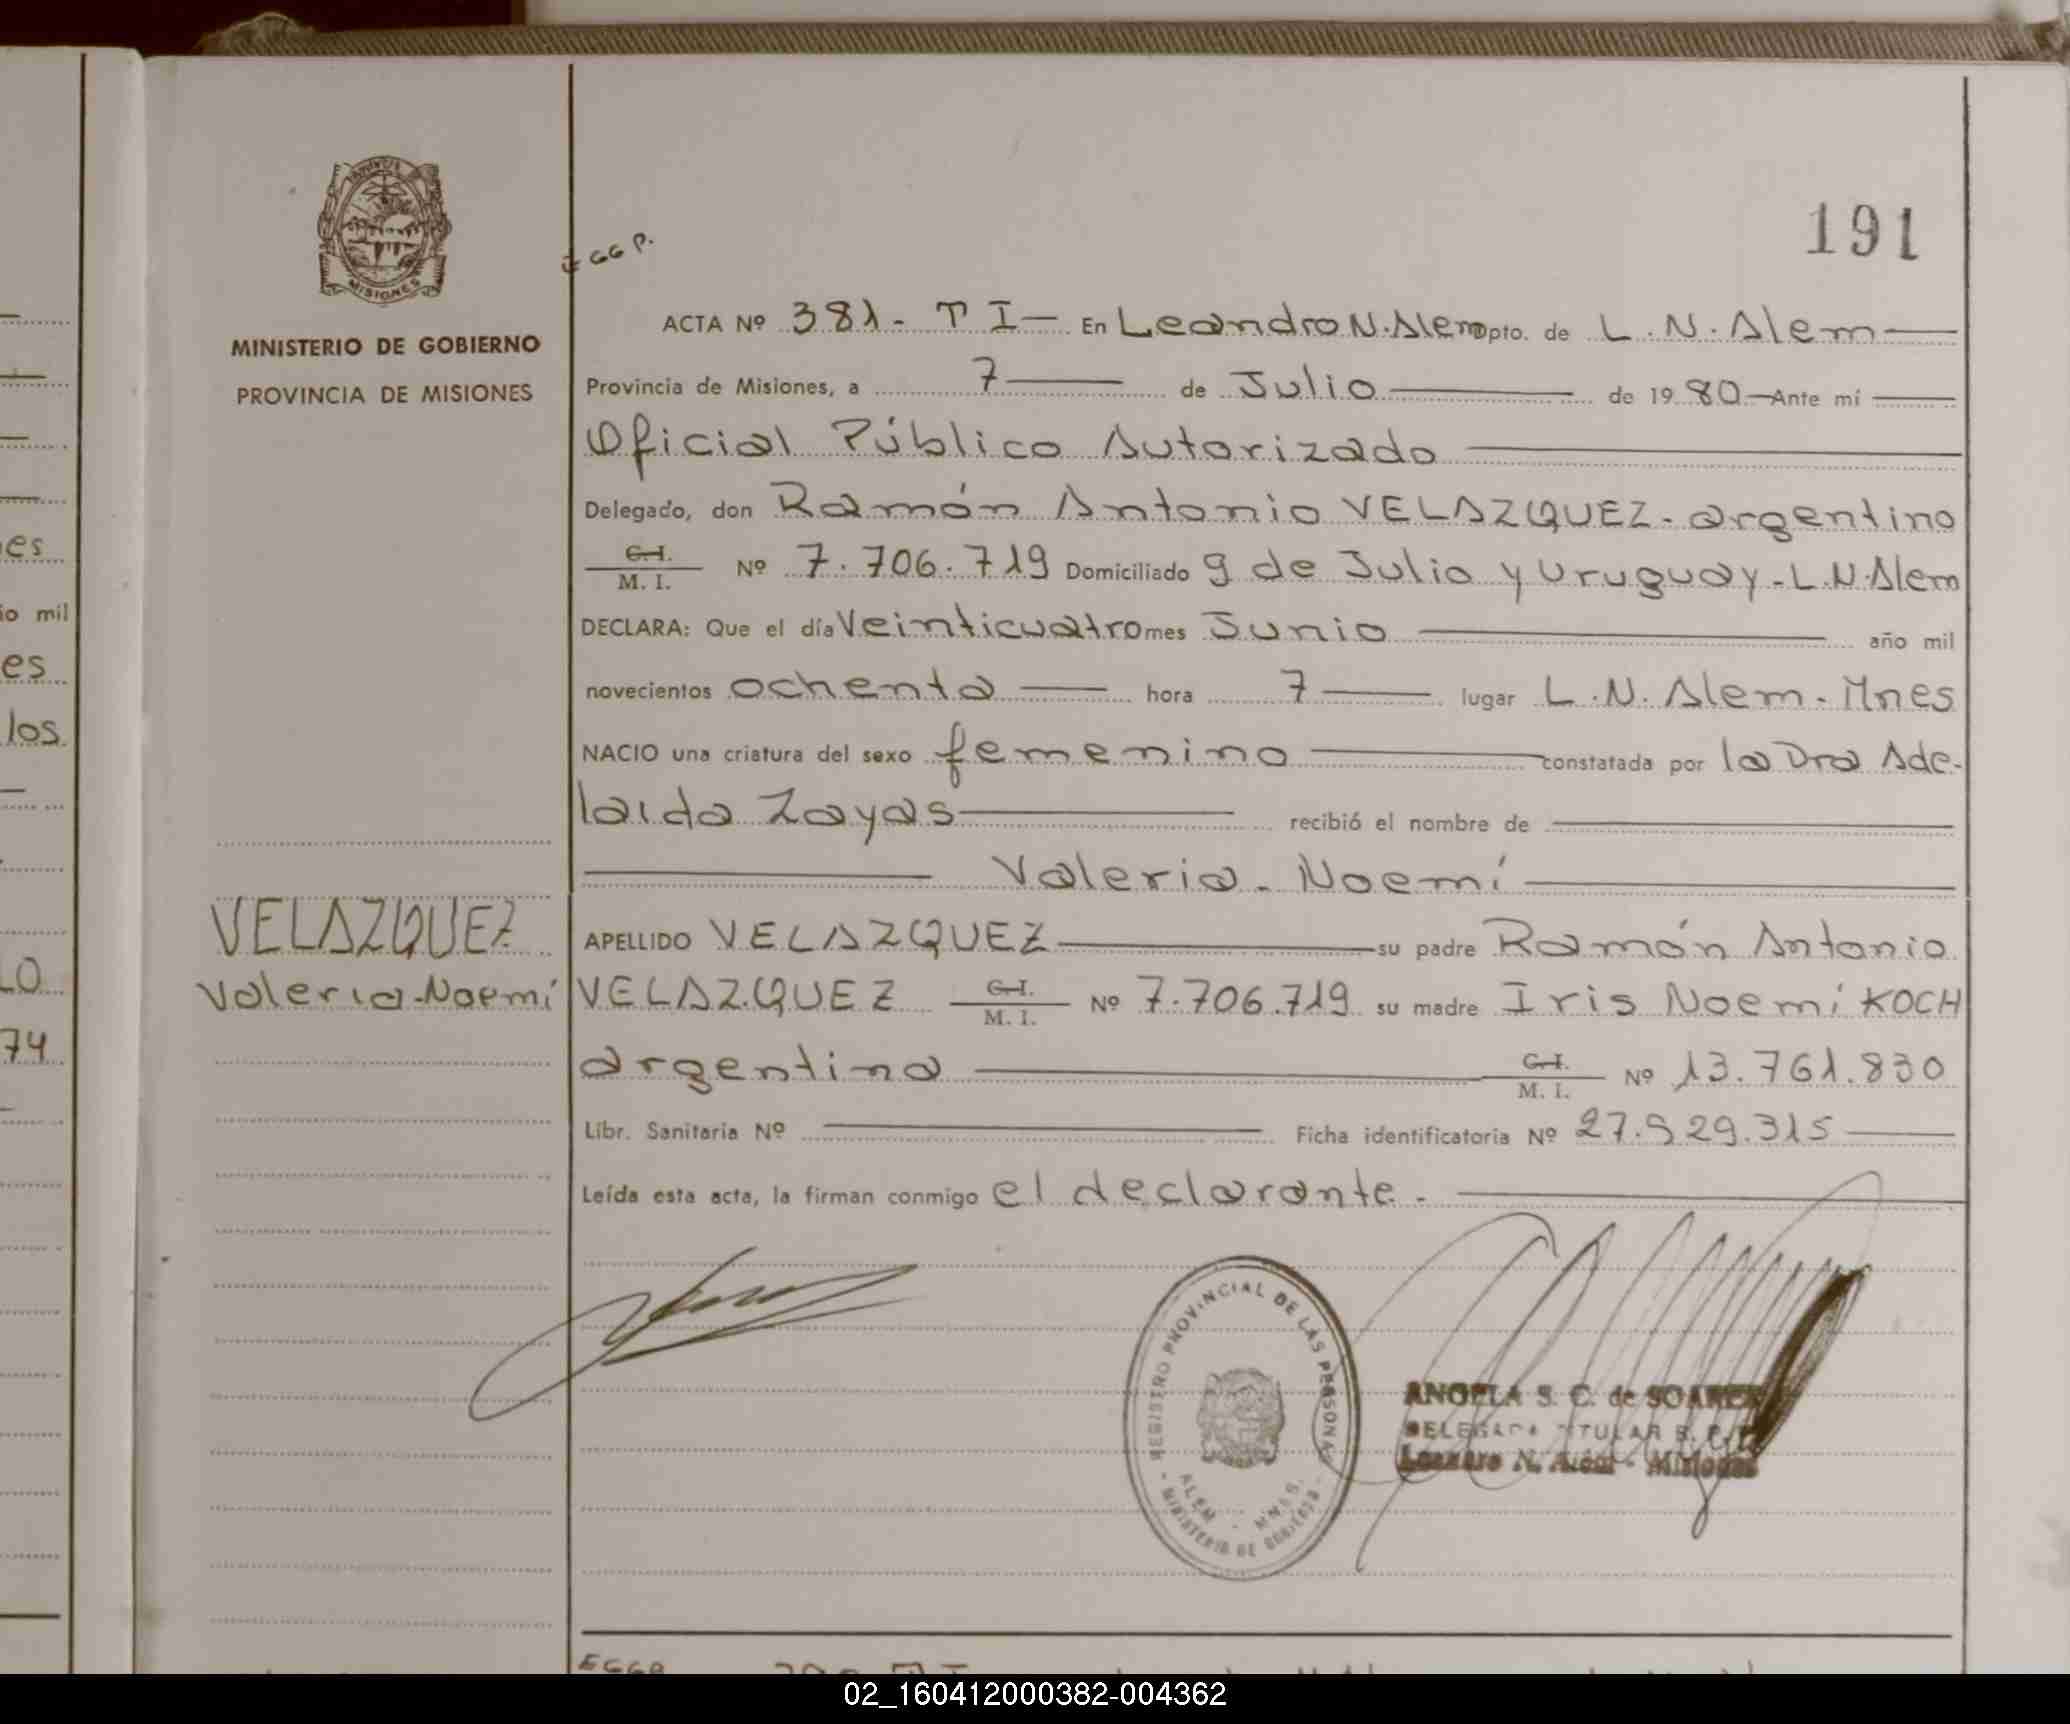 191
EGGP.
MINISTERIO DE GOBIERNO
PROVINCIA DE MISIONES
ACTA Nº 381 - T I — En Leandro N. Alem Dpto. de L. N. Alem —
Provincia de Misiones, a 7 — de Julio — de 1980 — Ante mí —
Oficial Público Autorizado —
Delegado, don Ramón Antonio VELAZQUEZ - argentino
C. I. / M. I. Nº 7.706.719 Domiciliado 9 de Julio y Uruguay - L.N. Alem
DECLARA: Que el día Veinticuatro mes Junio — año mil
novecientos ochenta — hora 7 — lugar L. N. Alem - Mnes
NACIO una criatura del sexo femenino — constatada por la Dra Ade-
laida Zayas — recibió el nombre de —
— Valeria - Noemí —
VELAZQUEZ
Valeria-Noemí
APELLIDO VELAZQUEZ — su padre Ramón Antonio
VELAZQUEZ C. I. / M. I. Nº 7.706.719 su madre Iris Noemí KOCH
argentina — C. I. / M. I. Nº 13.761.830
Libr. Sanitaria Nº — Ficha identificatoria Nº 27.929.315 —
Leída esta acta, la firman conmigo el declarante. —
REGISTRO PROVINCIAL DE LAS PERSONAS
ALEM - MNES.
- MINISTERIO DE GOBIERNO -
ANGELA S. C. de SOAREZ
DELEGADA TITULAR R. P. P.
Leandro N. Alem - Misiones
es
io mil
es
los
LO
74
EGGP
02_160412000382-004362